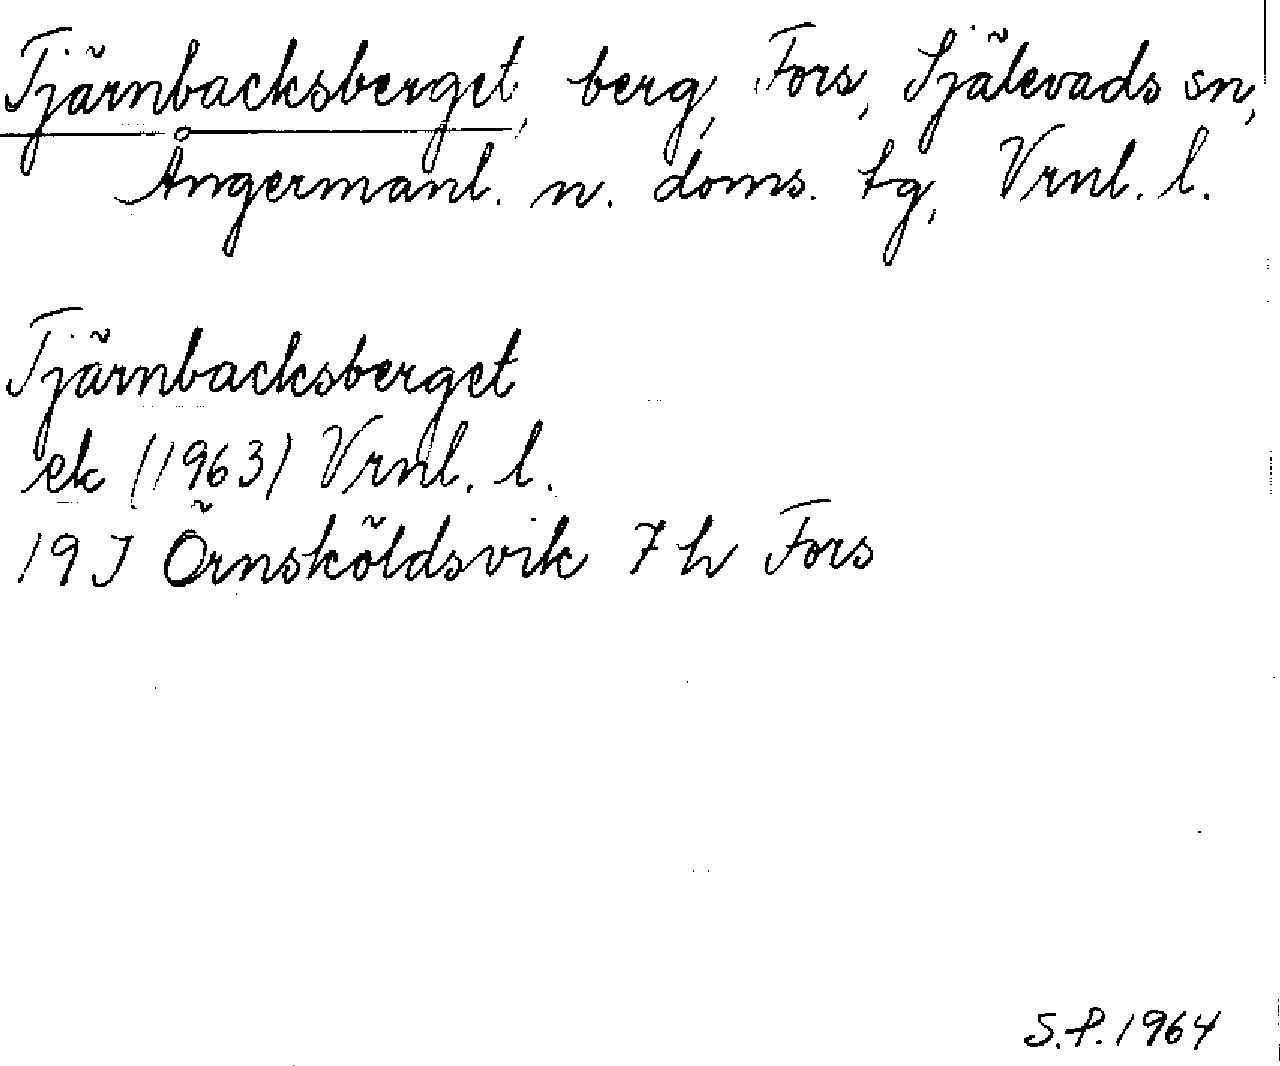 Tjärnbacksberget, berg, Fors, Själevads sn,
Ångermanl. n. doms. tg, Vrnl. l.
Tjärnbacksberget
ek (1963) Vrnl. l.
19J Örnsköldsvik 7 h Fors
S.P. 1964